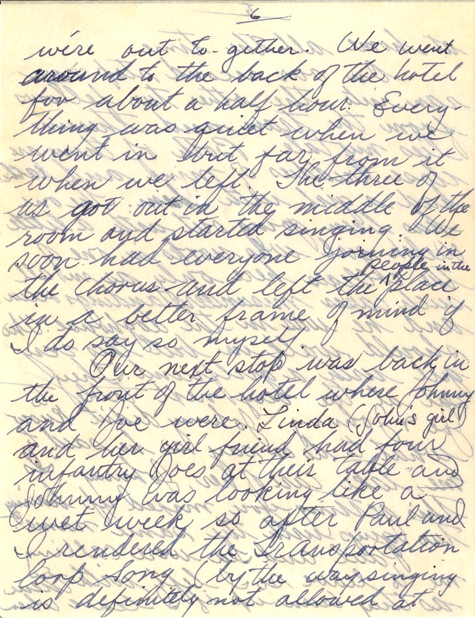 6
we're out to-gether. We went
around to the back of the hotel
for about a half hour. Every-
thing was quiet when we
went in but far from it
when we left. The three of
us got out in the middle of the
room and started singing. We
soon had everyone joining in
the chorus and left the people in the place
in a better frame of mind if
I do say so myself.
Our next stop was back in
the front of the hotel where Johnny
and Joe were. Linda (John's girl)
and her girl friend had four
infantry Joes at their table and
Johnny was looking like a
wet week so after Paul and
I rendered the Transportation
Corp Song (by the way singing
is definitely not allowed at